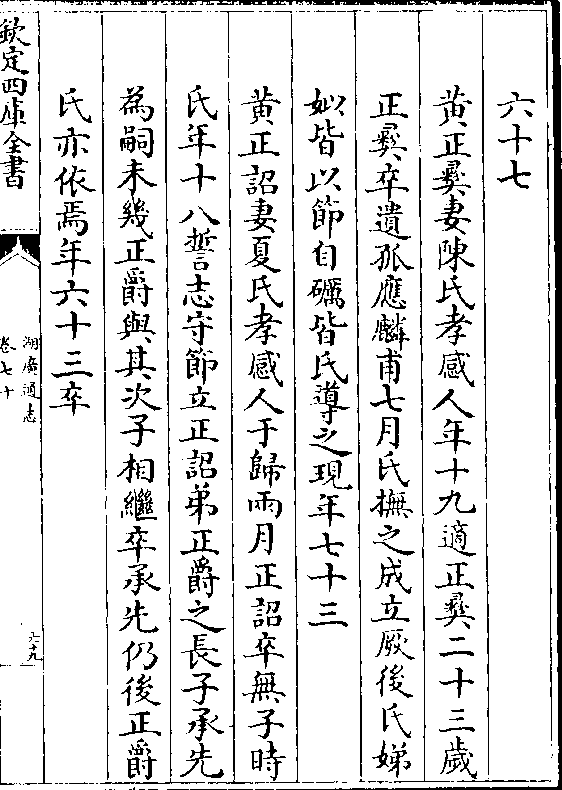 六十七
黄正彛妻陳氏孝感人年十九適正彛二十三歳
正彛卒遺孤應麟甫七月氏撫之成立厥後氏娣
姒皆以節自礪皆氏導之現年七十三
黄正詔妻夏氏孝感人于歸兩月正詔卒無子時
氏年十八誓志守節立正詔弟正爵之長子承先
為嗣未幾正爵與其次子相繼卒承先仍後正爵
氏亦依焉年六十三卒
欽定四庫全書
湖廣通志
卷七十
六十九